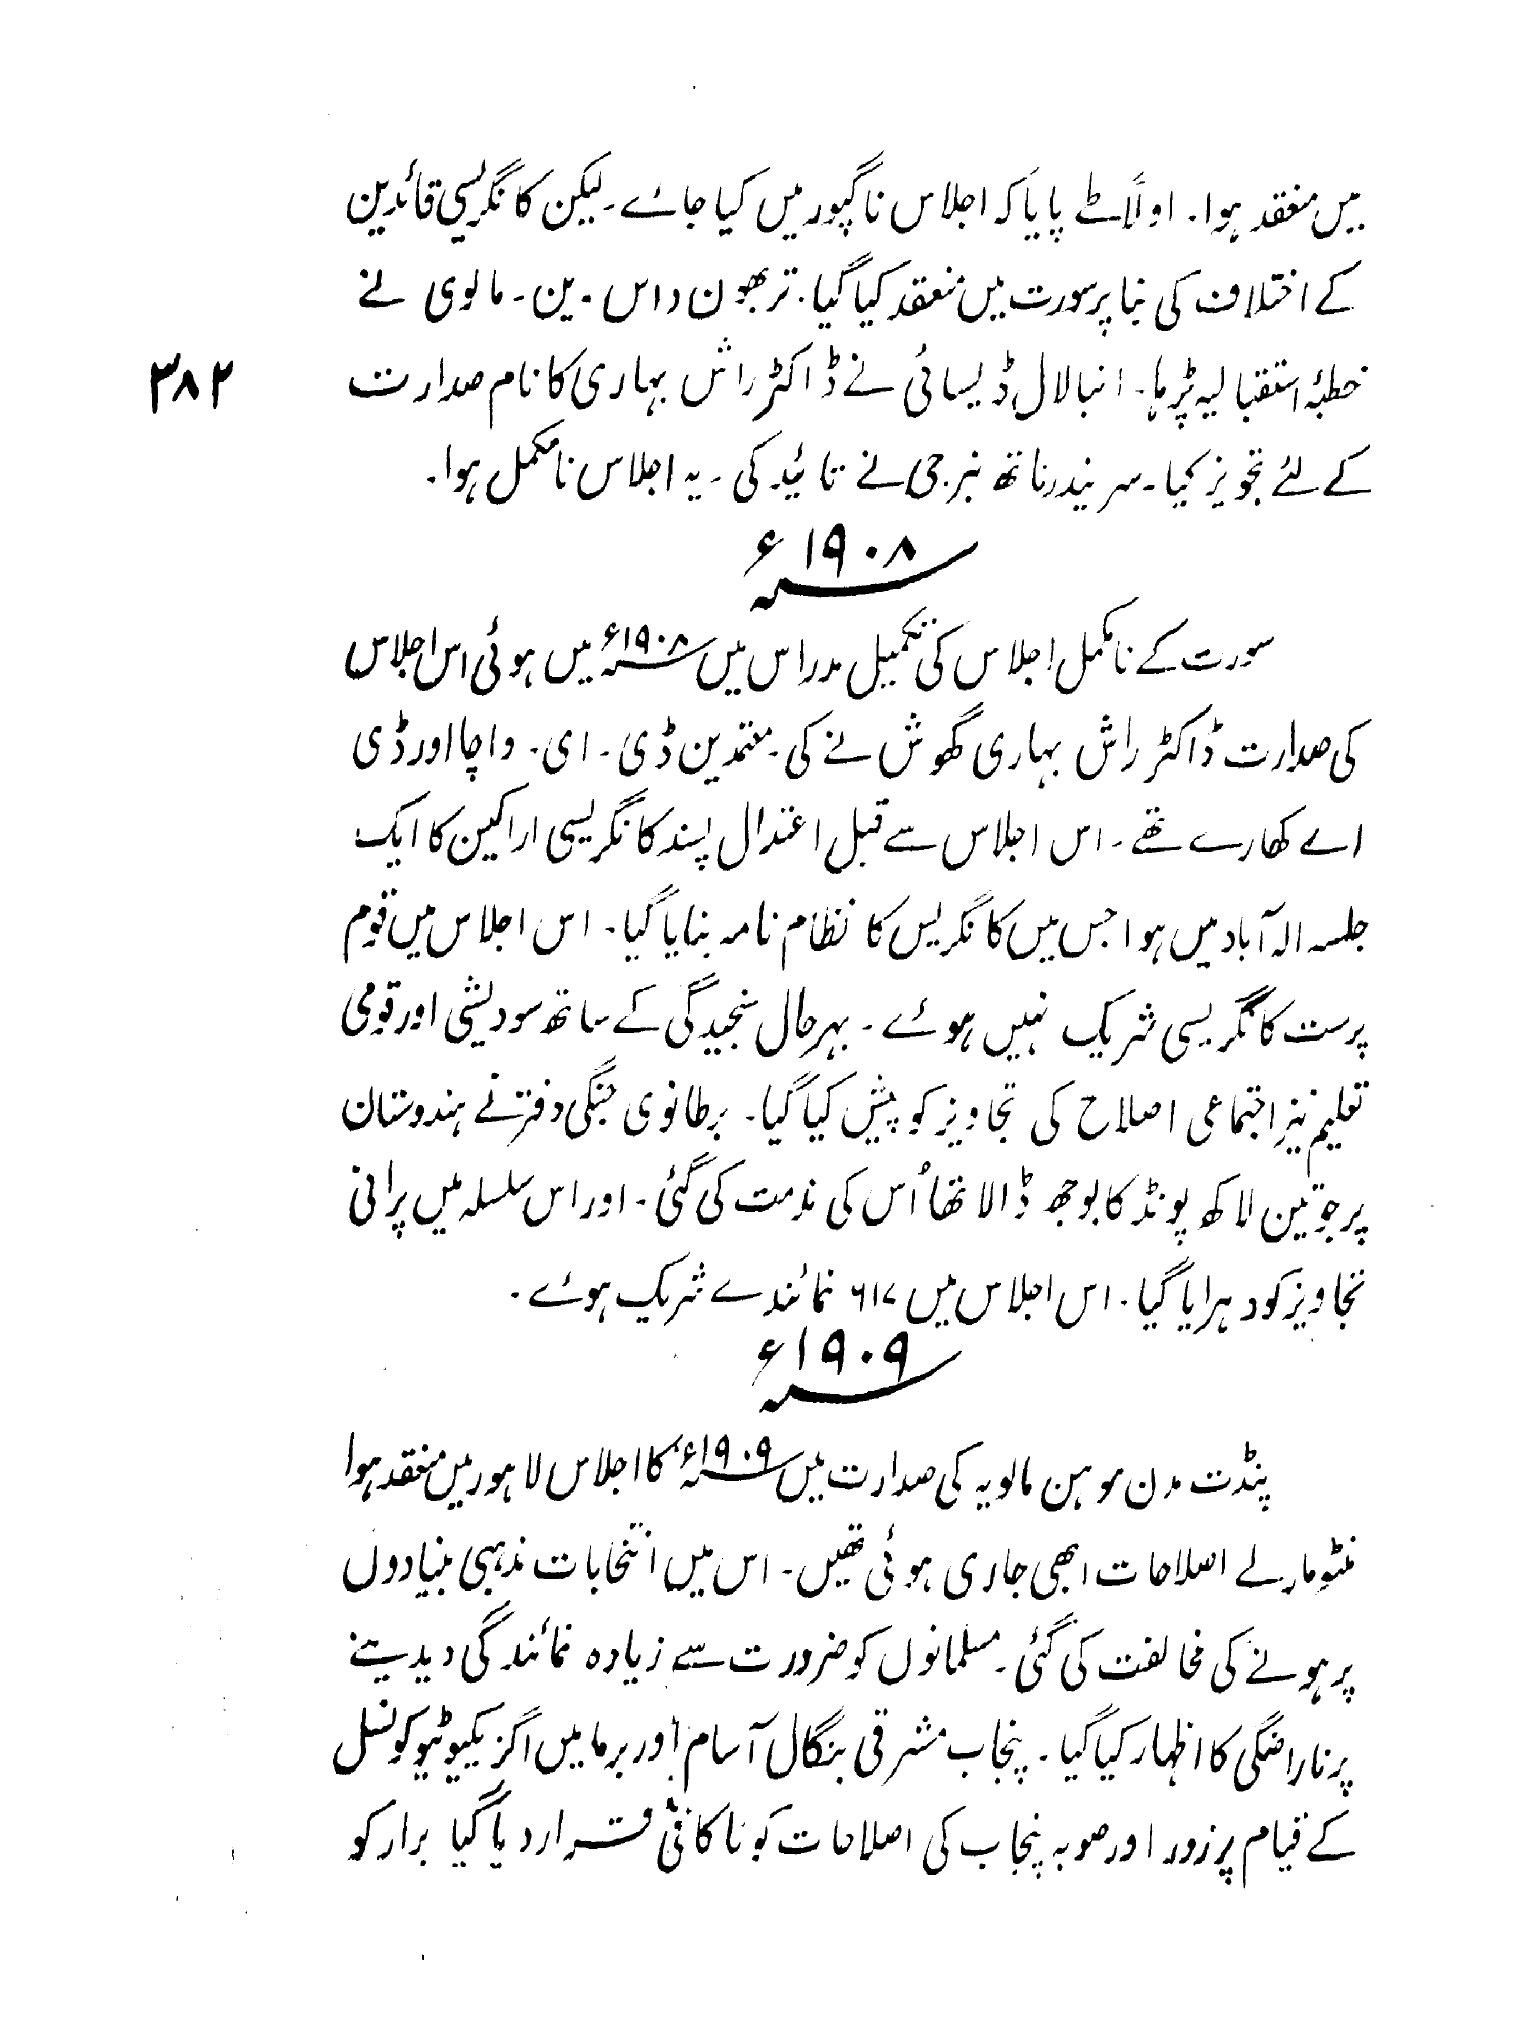 میں منعقد ہوا۔ اولاً طے پایا کہ اجلاس ناگپور میں کیا جائے۔ لیکن کانگریسی قائدین
کے اختلاف کی بنا پر سورت میں منعقد کیا گیا۔ تربھون داس۔ ین۔ مالوی نے
خطبۂ استقبالیہ پڑھا۔ انبالال ڈیسائی نے ڈاکٹر راش بہاری کا نام صدارت
۳۸۲
کے لئے تجویز کیا۔ سریندرناتھ بنرجی نے تائید کی۔ یہ اجلاس نامکمل ہوا۔
سنہ ۱۹۰۸ء
سورت کے نامکمل اجلاس کی تکمیل مدراس میں سنہ ۱۹۰۸ء میں ہوئی اس اجلاس
کی صدارت ڈاکٹر راش بہاری گھوش نے کی۔ معتمدین ڈی۔ ای۔ واچا اور ڈی
اے کھارے تھے۔ اس اجلاس سے قبل اعتدال پسند کانگریسی اراکین کا ایک
جلسہ الہ آباد میں ہوا جس میں کانگریس کا نظام نامہ بنایا گیا۔ اس اجلاس میں قوم
پرست کانگریسی شریک نہیں ہوئے۔ بہرحال سنجیدگی کے ساتھ سودیشی اور قومی
تعلیم نیز اجتماعی اصلاح کی تجاویز کو پیش کیا گیا۔ برطانوی جنگی دفتر نے ہندوستان
پر جو تین لاکھ پونڈ کا بوجھ ڈالا تھا اُس کی مذمت کی گئی۔ اور اس سلسلہ میں پرانی
تجاویز کو دہرایا گیا۔ اس اجلاس میں ۶۱۷ نمائندے شریک ہوئے۔
سنہ ۱۹۰۹ء
پنڈت مدن موہن مالویہ کی صدارت میں سنہ ۱۹۰۹ء کا اجلاس لاہور میں منعقد ہوا
منٹو مارلے اصلاحات ابھی جاری ہوئی تھیں۔ اس میں انتخابات مذہبی بنیادوں
پر ہونے کی مخالفت کی گئی۔ مسلمانوں کو ضرورت سے زیادہ نمائندگی دیدینے
پر ناراضگی کا اظہار کیا گیا۔ پنجاب مشرقی بنگال آسام اور برما میں اگزیکیوٹیو کونسل
کے قیام پر زور اور صوبہ پنجاب کی اصلاحات کو ناکافی قرار دیا گیا برار کو